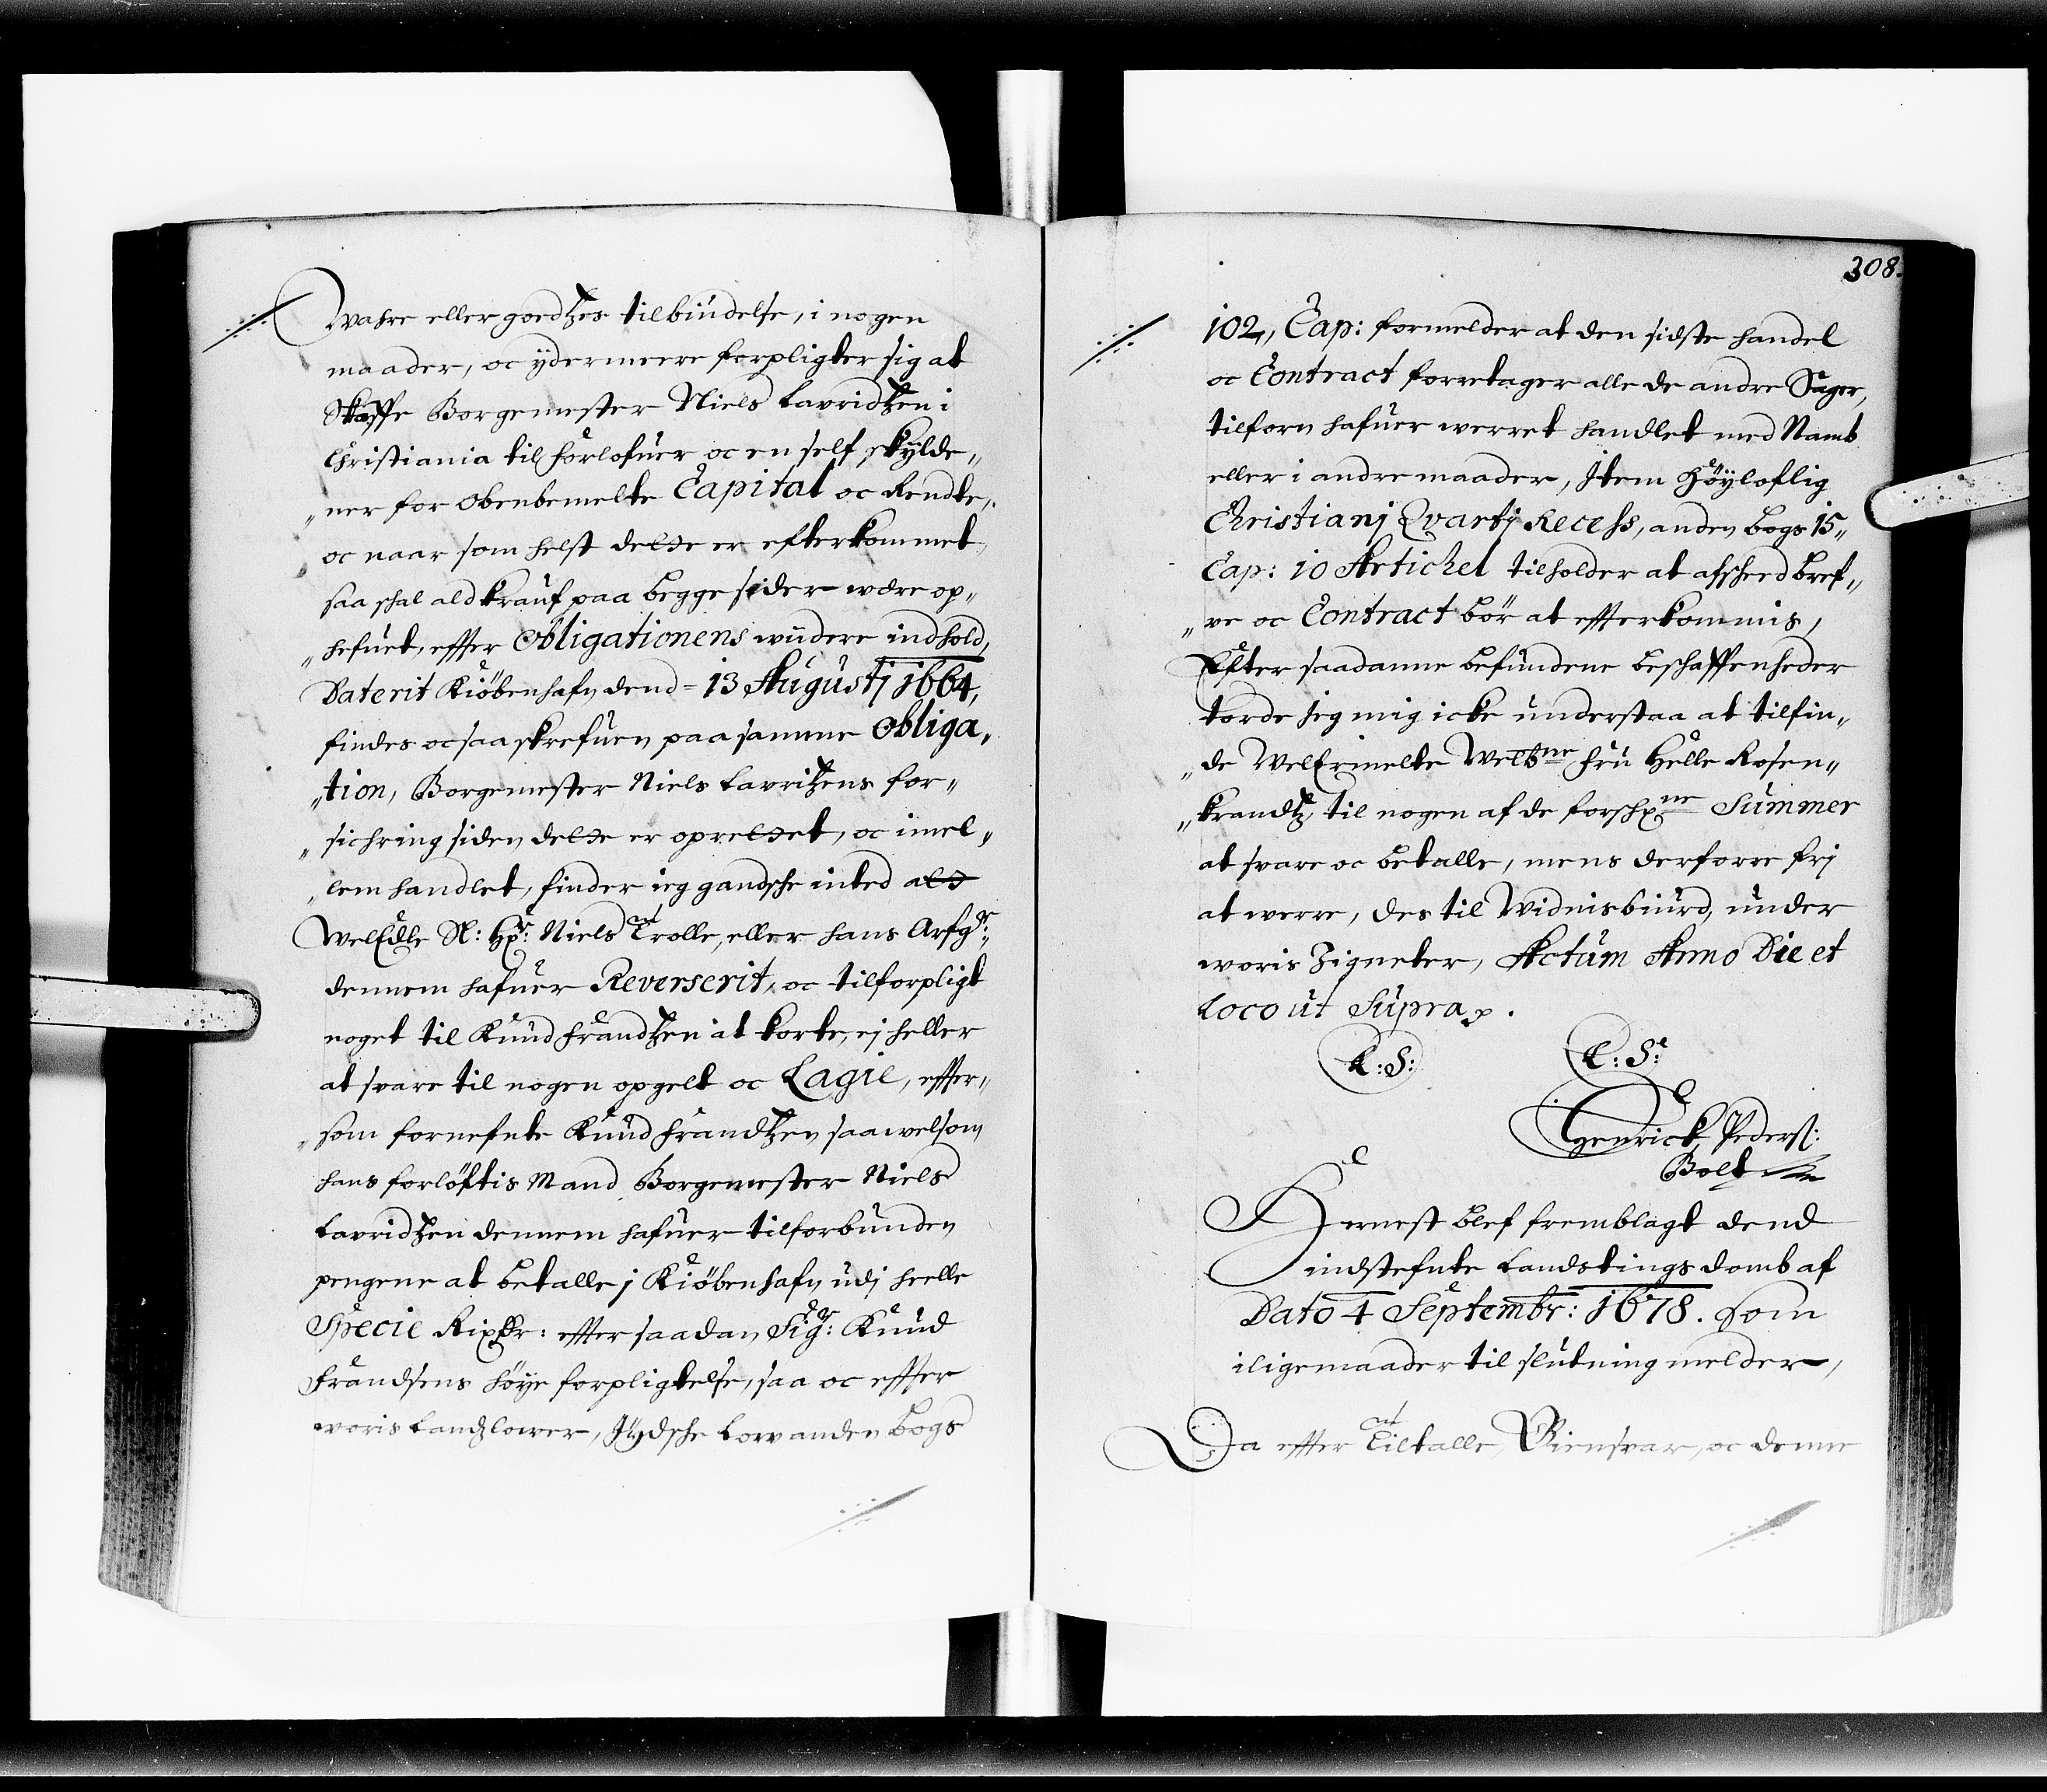 Wahre eller goedtzes tilbindelse, i nogen
maader, oc ydermeere forpligter sig at
Skaffe Borgemester Niels Lavridtzen i
Christiania til forlofuer oc en self skylde„
„ner for obenbemelte Capital oc Rendte,
oc naar som helst dette er efterkommet,
saa schal ald krauf paa begge sider være op„
„hefuet, effter Obligationens wiidere indhold,
Daterit Kiöbenhafn dend = 13 Augustj 1664,
findes ocsaa skrefuen paa samme Obliga„
„tion, Borgemester Niels Lavritzens for„
„sichring siden dette er oprettet, oc imel„
„lem handlet, finder ieg gandsche inted att
WelEdle S: Hr: Niels Trolle, eller hans Arfgr:,
dennem hafuer Reverserit, oc tilforpligt
noget til Knud Frandtzen at korte, ej heller
at svare til nogen opgelt oc Lagie, effter„
„som fornefnte Knud Frandtzen saavelsom
hans forlöftis Mand Borgemester Niels
Lavridtzen dennem hafuer tilforbunden
pengene at betalle j Kiöbenhafn udj heelle
Specie Rixdr: effter saadan Sigr: Knud
Frandsens höye forpligtelse, saa oc effter
woris Landzlower, Jydsche Low anden Bogs
308.
102„ Cap: formelder at den sidste handel
oc Contract forretager alle de andre Sager,
tilforn hafuer werret handlet med Namb
eller i andre maader, Item Höyloflig
Christianj Qvartj Recess, anden bogs 15„
Cap: 10 Artichel tilholder at afscheed bref„
„ve oc Contract bör at effterkommis,
Effter saadanne befundene beschaffenheder
torde jeg mig icke understaa at tilfin„
„de Welermelte Welbne Fru Helle Rosen„
„krandtz, til nogen af de forschne Summer
at svare oc betalle, mens derforre frj
at werre, des til Widnisbiurd, under
woris Zigneter, Actum Anno Die et
Loco ut Supra p.
L:S: L:S:
Henrick Peders:
Bolt
Hernest blef fremblagt dend
indstefnte Landstings domb af
Dato 4 Septembr: 1678. som
iligemaader til slutning melder,
Da effter Tiltalle, Giensvar, oc denne